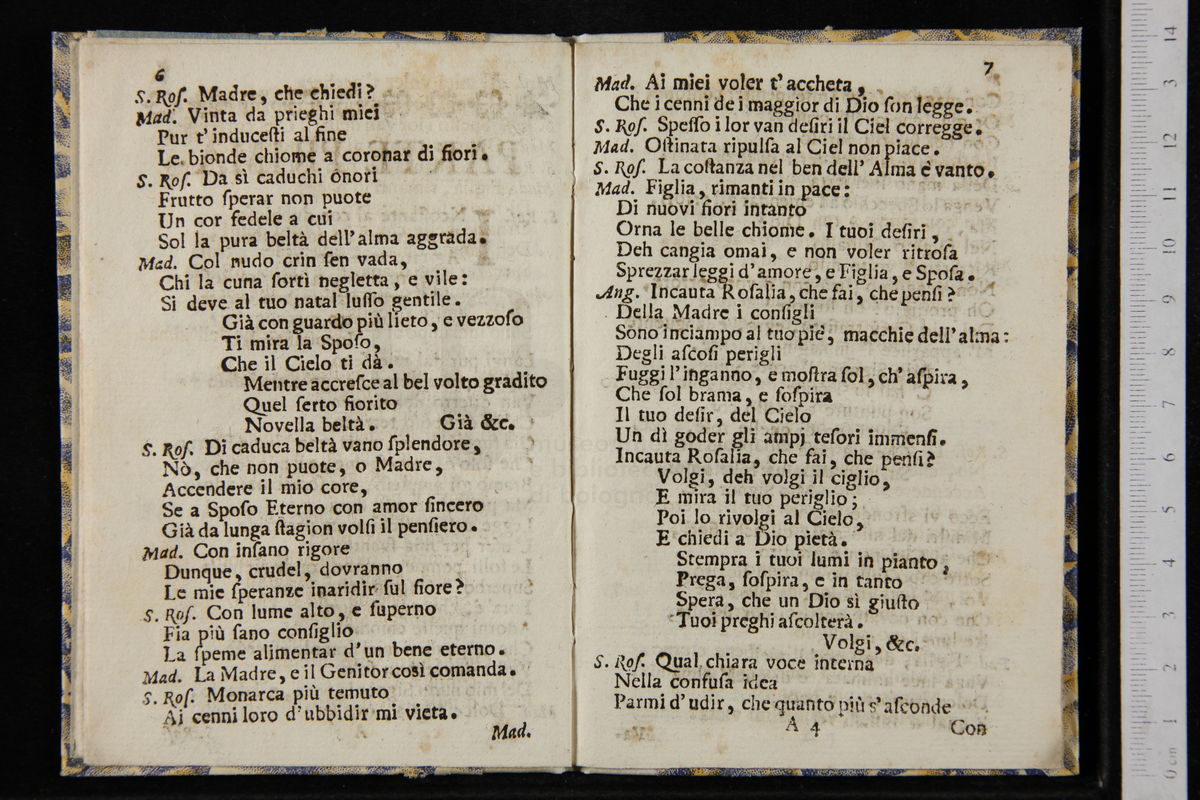 6
S. Roſ. Madre, che chiedi?
Mad. Vinta da prieghi miei
Pur t'induceſti al fine
Le bionde chiome a coronar di fiori.
S. Roſ. Da sì caduchi onori
Frutto ſperar non puote
Un cor fedele a cui
Sol la pura beltà dell'alma aggrada.
Mad. Col nudo crin ſen vada,
Chi la cuna ſortì negletta, e vile:
Si deve al tuo natal luſſo gentile.
Già con guardo più lieto, e vezzoſo
Ti mira la Spoſo,
Che il Cielo ti dà.
Mentre accreſce al bel volto gradito
Quel ſerto fiorito
Novella beltà. Già &c.
S. Roſ. Di caduca beltà vano ſplendore,
Nò, che non puote, o Madre,
Accendere il mio core,
Se a Spoſo Eterno con amor ſincero
Già da lunga ſtagion volſi il penſiero.
Mad. Con inſano rigore
Dunque, crudel, dovranno
Le mie ſperanze inaridir ſul fiore?
S. Roſ. Con lume alto, e ſuperno
Fia più ſano conſiglio
La ſpeme alimentar d'un bene eterno.
Mad. La Madre, e il Genitor così comanda.
S. Roſ. Monarca più temuto
Ai cenni loro d'ubbidir mi vieta.
Mad.
7
Mad. Ai miei voler t'accheta,
Che i cenni de i maggior di Dio ſon legge.
S. Roſ. Speſſo i lor van deſiri il Ciel corregge.
Mad. Oſtinata ripulſa al Ciel non piace.
S. Roſ. La coſtanza nel ben dell'Alma è vanto.
Mad. Figlia, rimanti in pace:
Di nuovi fiori intanto
Orna le belle chiome. I tuoi deſiri,
Deh cangia omai, e non voler ritroſa
Sprezzar leggi d'amore, e Figlia, e Spoſa.
Ang. Incauta Roſalia, che fai, che penſi?
Della Madre i conſigli
Sono inciampo al tuo piè, macchie dell'alma:
Degli aſcoſi perigli
Fuggi l'inganno, e moſtra ſol, ch'aſpira,
Che ſol brama, e ſoſpira
Il tuo deſir, del Cielo
Un dì goder gli ampj teſori immenſi.
Incauta Roſalia, che fai, che penſi?
Volgi, deh volgi il ciglio,
E mira il tuo periglio;
Poi lo rivolgi al Cielo,
E chiedi a Dio pietà.
Stempra i tuoi lumi in pianto,
Prega, ſoſpira, e in tanto
Spera, che un Dio sì giuſto
Tuoi preghi aſcolterà.
Volgi, &c.
S. Roſ. Qual chiara voce interna
Nella confuſa idea
Parmi d'udir, che quanto più s'aſconde
A 4 Con
0 cm 1 2 3 4 5 6 7 8 9 10 11 12 3 14